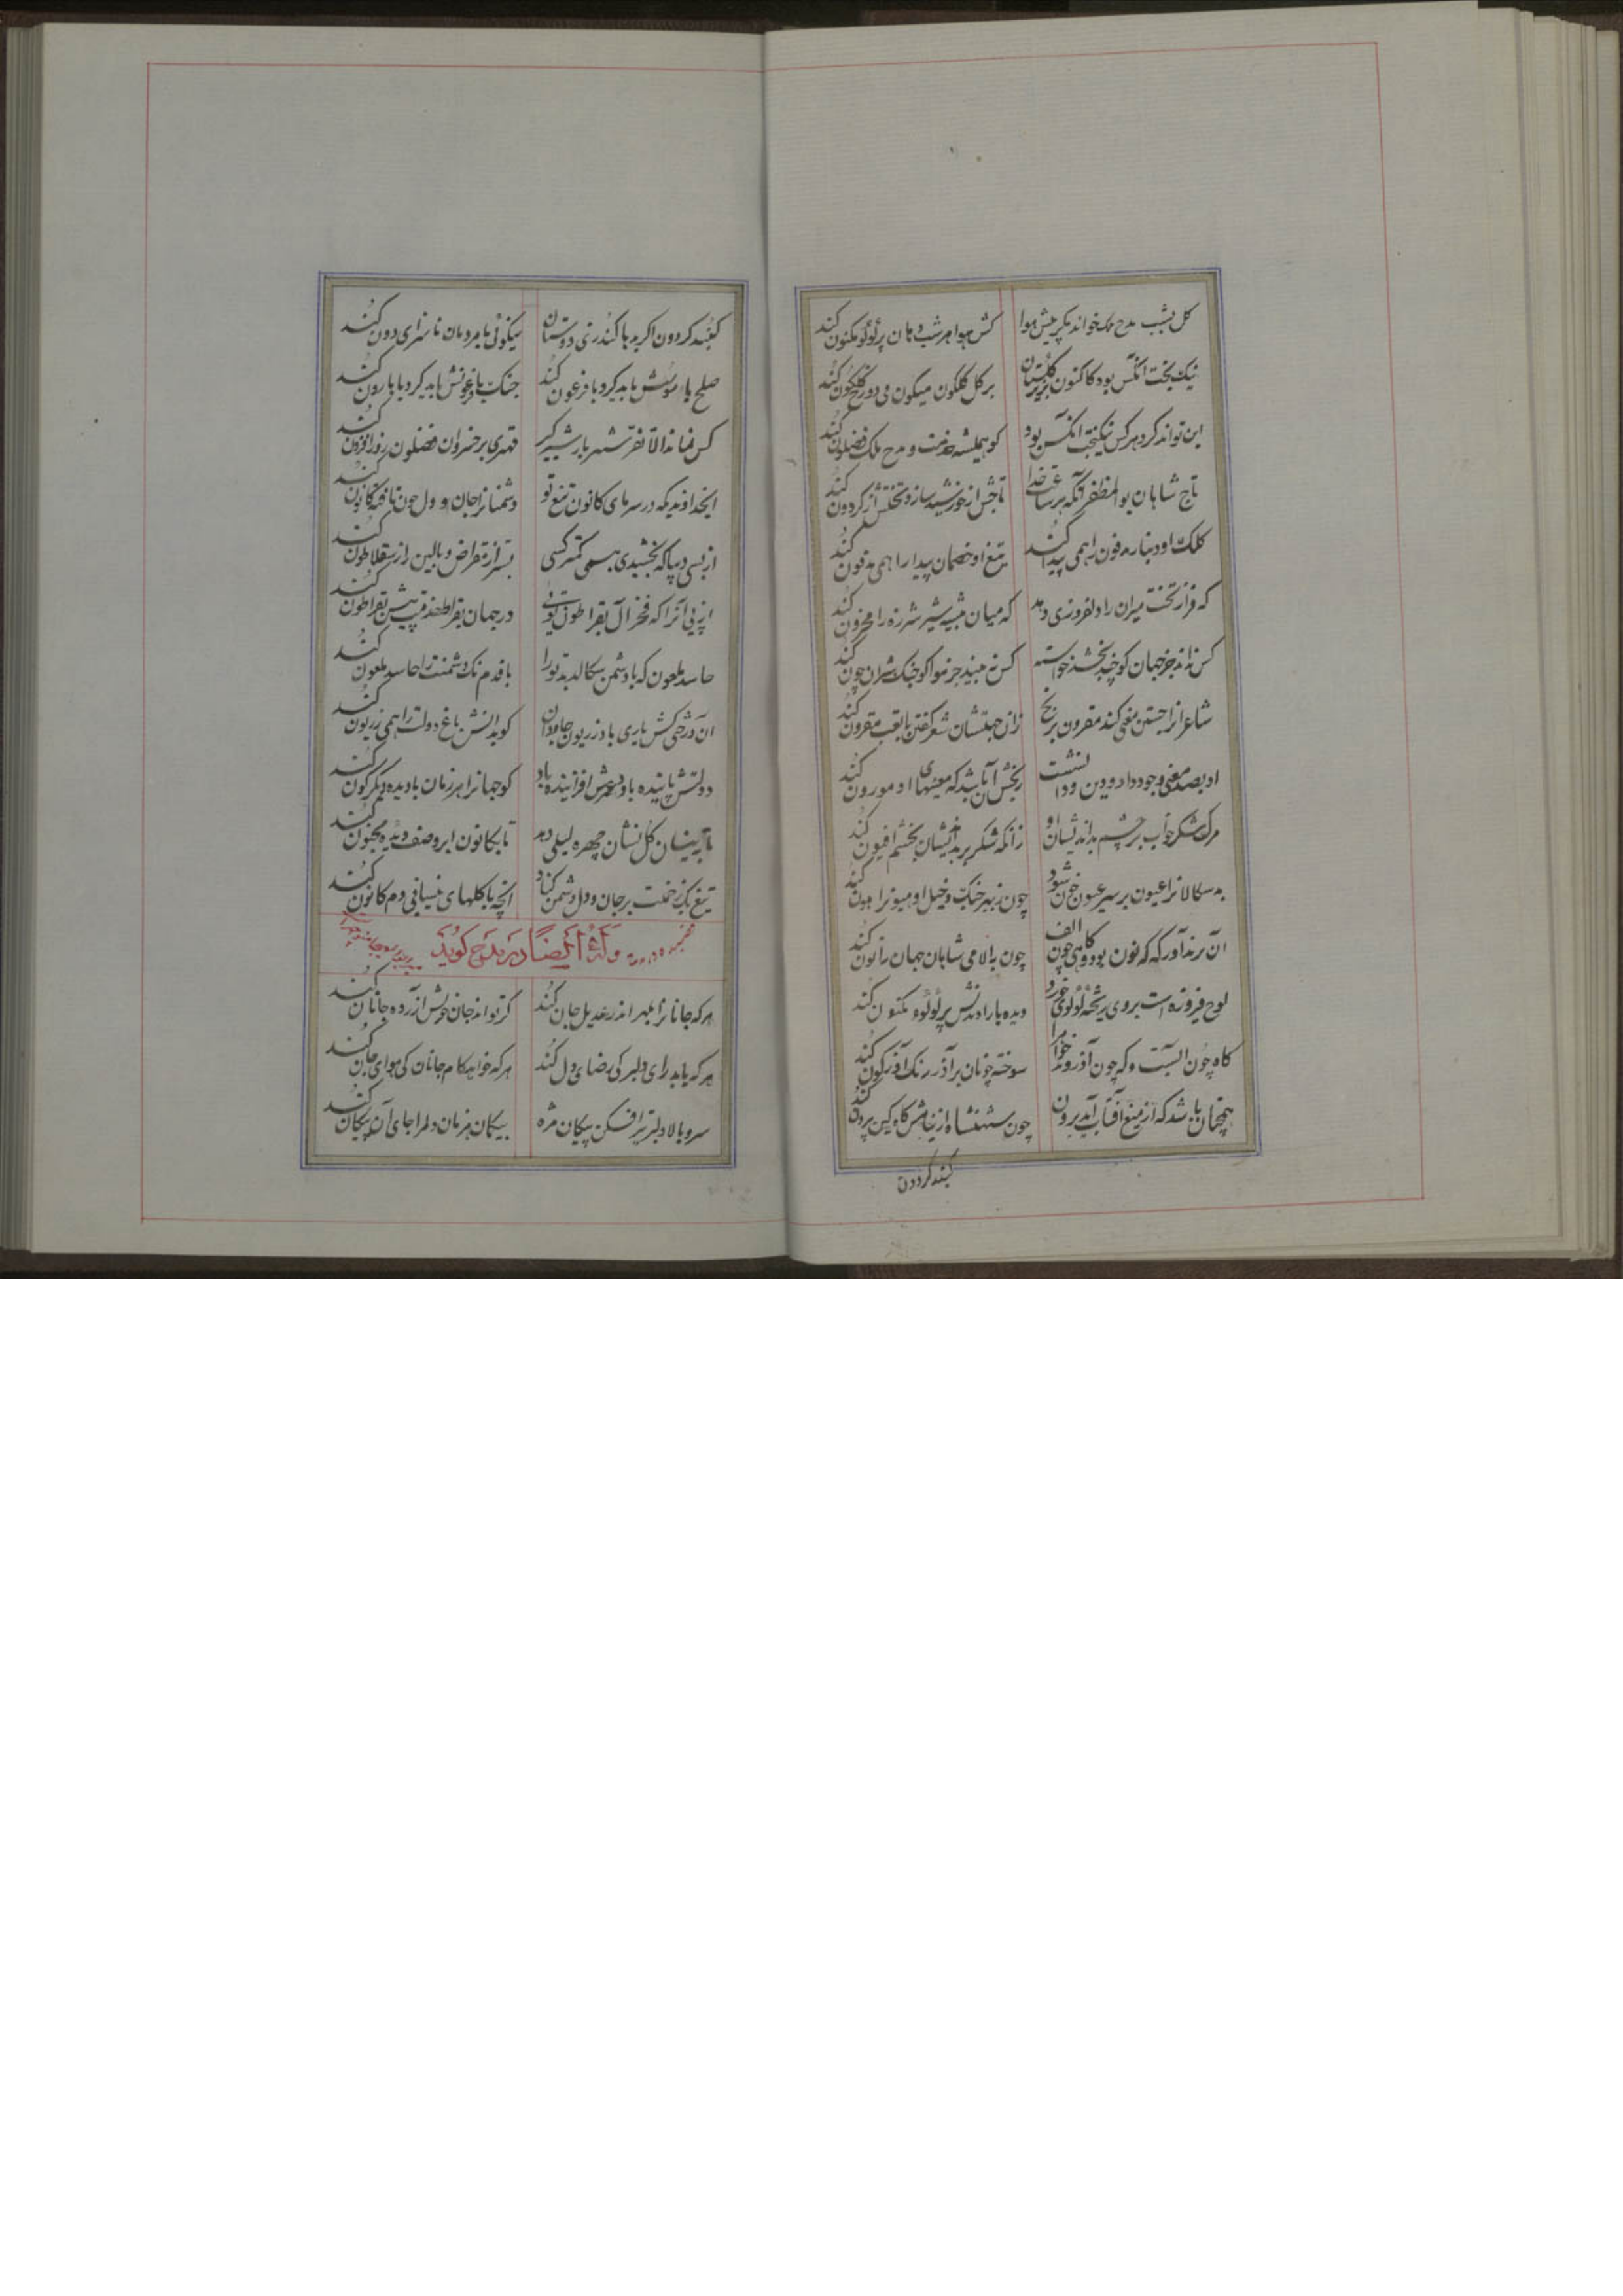 کل بشب مدح ملک خواند مکر پیش هوا کش هوا هر شب دهان پر لؤلؤ مکنون کند
نیک بخت انکس بود کاکنون بر کل کلکون میکون می دو رخ کلکون کند
این تواند کرد هر کس نیکبخت انکس بود کو همیشه خدمت و مدح ملک فضلون کند
تاج شاهان بوالمظفر آنکه هر ساعت خدای تاجش از خورشید سازد تختش از کردون کند
کلک او دینار مدفون را همی پیدا کند تیغ او خصمان پیدا را همی مدفون کند
که فراز تخت میران را دلفروزی دهد که میان بیشه شیر شرزه را محزون کند
کس نداند جز جهان کو چند بخشد خواسته کس نه بیند جز هوا کو جنک شیران چون کند
شاعرانرا جستن معنی کند مقرون برنج زان جهتشان شعر کفتن با تعب مقرون کند
او بصد معنی وجود داد و دین و دانشست رنجش آن باشد که معنیهای او موزون کند
مرک شکر خواب بر چشم بداندیشان او زانکه شکر بر بداندیشان بخشم افیون کند
بد سکالانرا عیون بر سر عیون خون شود چون زبهر جنک و خیل او هیونرا هون کند
آن پرند آور که که نون بود و کاهی چون الف چون بالا می شاهان جهان را نون کند
لوح فیروزه است بروی ریخته لؤلؤی خورد دیده بارادنش پر لؤلؤ مکنون کند
کاه چون آلست و که چون آذر و بدخواه را سوخته چونان بر آذر رنک آذرکون کند
همچنان باشد که از میغ آفتاب آید برون چون شهنشاه از نیامش کاه کین بیرون کند
کنبد کردون
کنبد کردون اکر بد با کند زی دوستان نیکوئی با مردمان ناسزای دون کند
صلح با موسش باید کرد با فرعون کند جنک با فرعونش باید کرد با هارون کند
کس نماند الا تقر شهریار شیر کیر قهری بر خسروان فضلون روزافزون کند
ایخداوندیکه در سرمای کانون تیغ تو دشمنانرا جان و دل چون تافته کانون کند
از بسی دیبا که بخشیدی همی کمتر کسی بستر از مقراض و بالین را ز سقلاطون کند
از پی آنرا که فخر آل بقراطون توئی در جهان بقراط خدمت پیش بقراطون کند
حاسد ملعون که با دشمن سکالد بد تو را با قدم نک دشمنت را حاسد ملعون کند
آن درختی کش یاری باد زریون جاودان کو بدانش باغ دولت را همی زریون کند
دولتش پاینده باد و عمرش افزاینده باد کو جهانرا هر زمان بادیده دیکرکون کند
تا به نیسان کل نشان چهره لیلی دهد تا بکانون ابر وصف دیده مجنون کند
تیغ بکزخمت بر جان و دل دشمن کناد انچه با کلهای نیسانی دم کانون کند
وله ایضا در مدح کوید
هر که جانانرا بمهر اندر عدیل جان کند کر تواند جان خویش آزرده جانان کند
هر که یابد رای دلبر کی رضای دل کند هر که خواهد کام جانان کی هوای جان کند
سرو بالا دلبر تیر افکن پیکان مژه بیکمان هر زمان دلرا جای آن پیکان کند